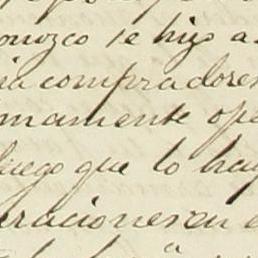 onozco se hizo a
ia compradores
mamente ope
luego que lo hay
eraciones en e